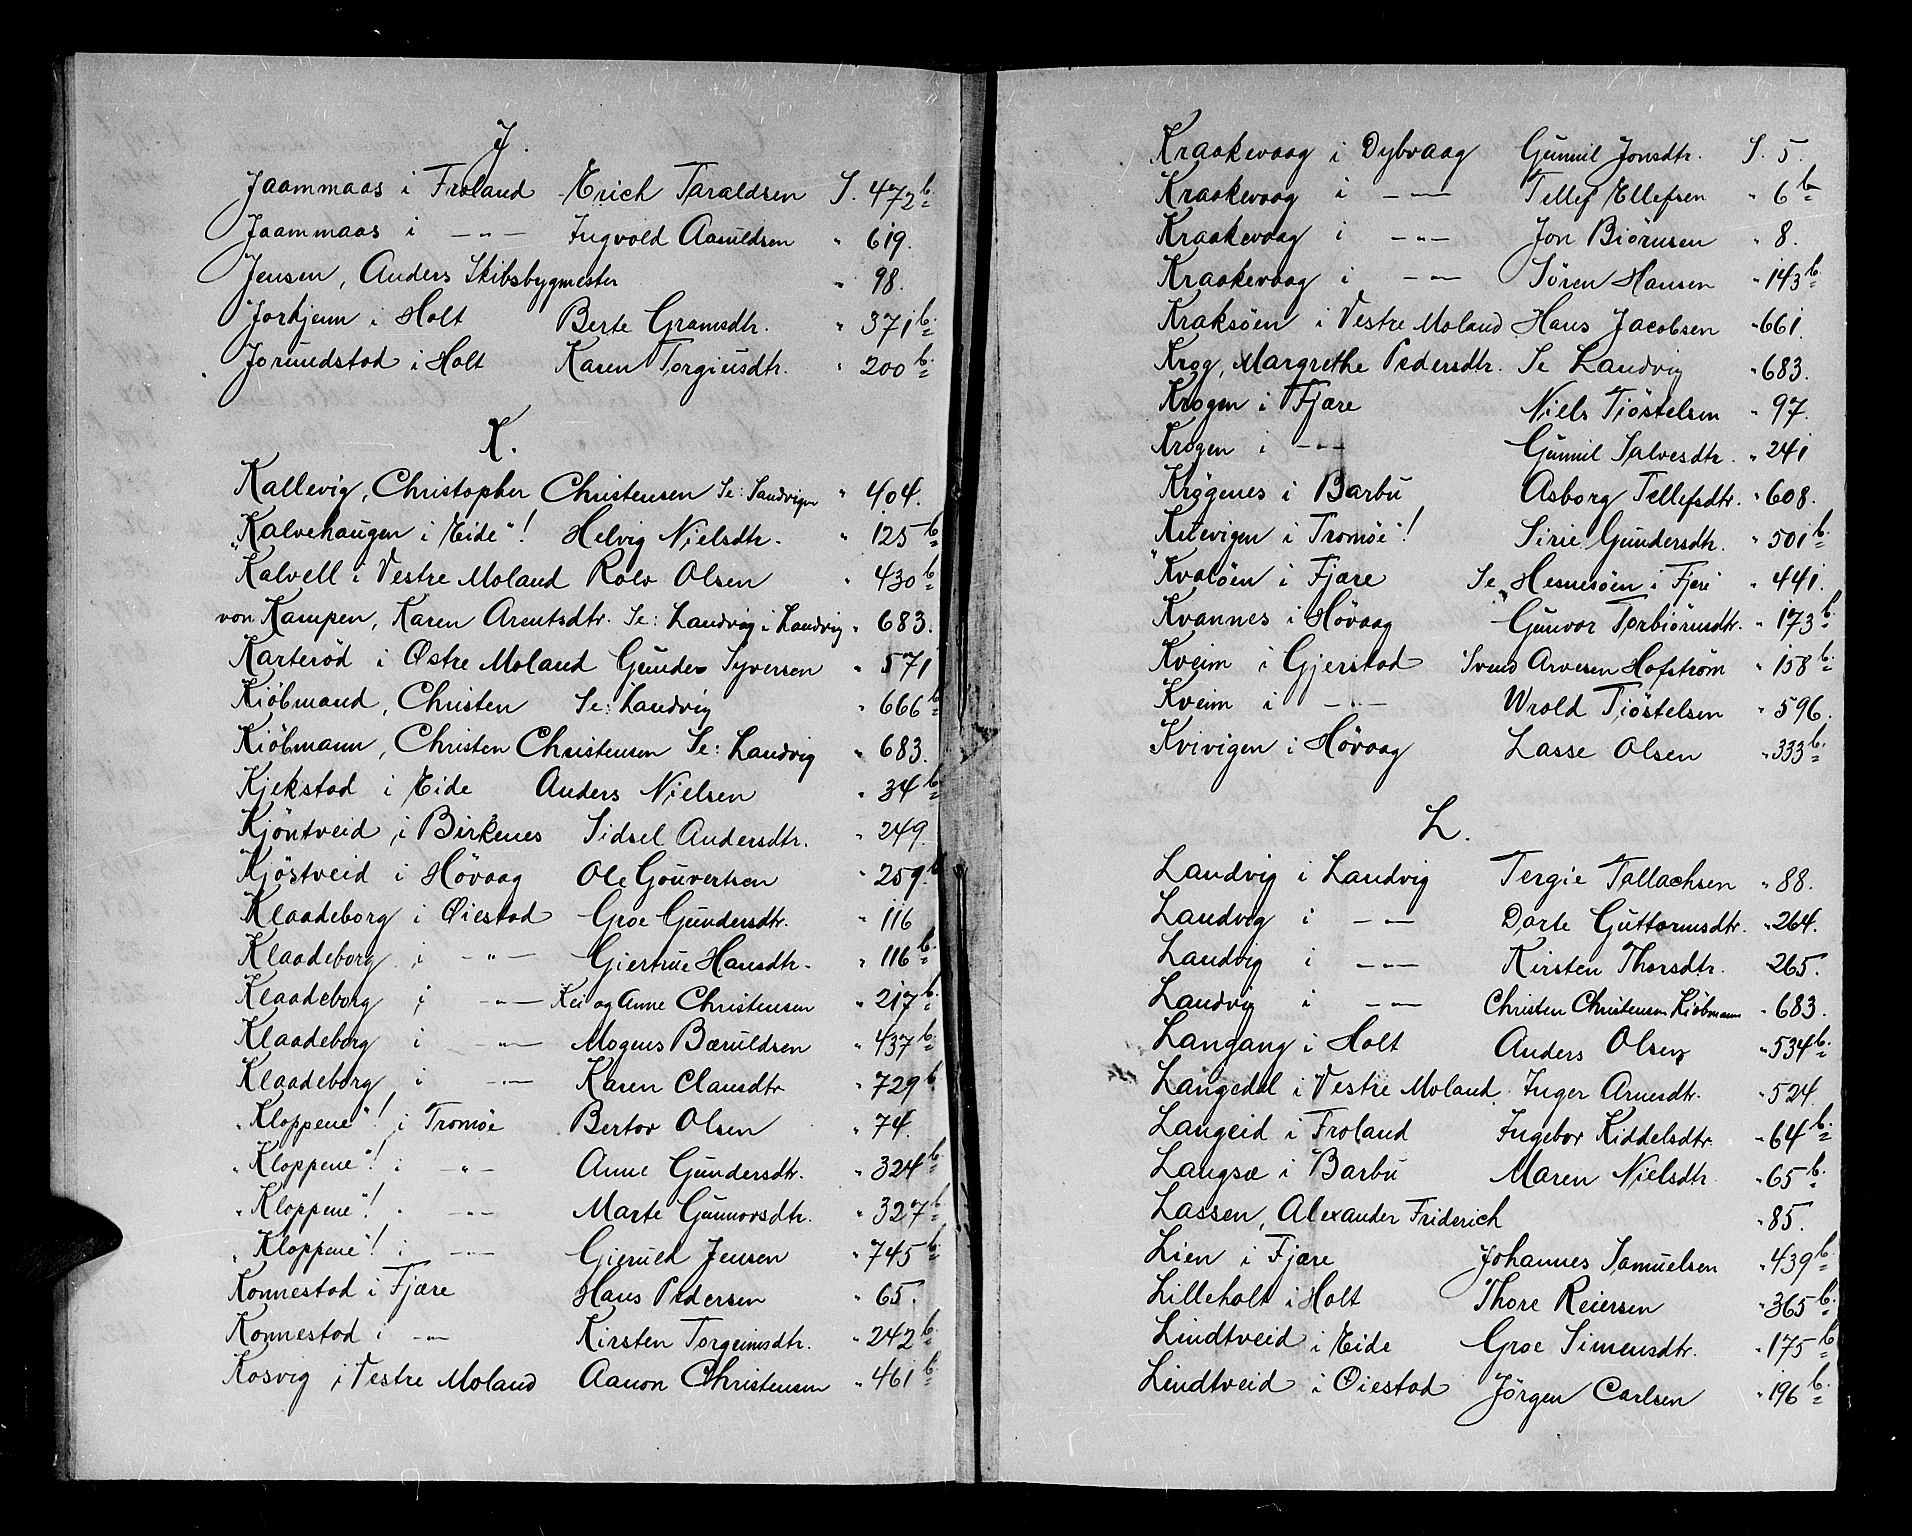 J.
Jaammaas i Froland Erich Taraldsen S. 472 b.
Jaammaas i -"- Ingvold Aasuldsen " 619.
Jensen, Anders Skibsbygmester " 98.
Jorkjenn i Holt Berte Gramsdtr. " 371 b.
Jorundstad i Holt Karen Torgiusdtr. " 200 b.
K.
Kallevig, Christopher Christensen Se: Sandvigen " 404.
"Kalvehaugen i Eide"! Helvig Nielsdtr. " 125 b
Kalvell i Vestre Moland Rolv Olsen " 430 b.
von Kampen, Karen Arentsdtr. Se: Landvig i Landvig " 683.
Karteröd i Østre Moland Gunder Syversen " 571
Kiöbmand, Christen Se: Landvig " 666 b
Kiöbmann, Christen Christensen Se: Landvig " 683.
Kjekstad i Eide Anders Nielsen " 34 b.
Kjöntveid i Birkenes Sidsel Andersdtr. " 249.
Kjöstveid i Hövaag Ole Gouvertsen " 259. b
Klaadeborg i Øiestad Groe Gundersdtr. " 116
Klaadeborg i -"- Giertrue Hansdtr. " 116 b.
Klaadeborg i -"- Kei og Anne Christensen " 217 b.
Klaadeborg i -"- Mogens Bæruldsen " 437 b.
Klaadeborg i -"- Karen Clausdtr " 729 b
"Kloppene"! i Tromöe Bertor Olsen " 74.
"Kloppene"! i -"- Anne Gundersdtr. " 324 b.
"Kloppene"! " -"- Marte Gunnorsdtr. " 327 b
"Kloppene"! i -"- Gieruld Jensen " 745 b.
Konnestad i Fjære Hans Pedersen " 65.
Konnestad i -"- Kirsten Torgeimsdtr. " 242 b.
Kosvig i Vestre Moland Aanon Christensen " 461 b.
Kraakevaag i Dybvaag Gunnil Jonsdtr. S. 5.
Kraakevaag i -"- Tellef Ellefsen " 6 b
Kraakevaag i -"- Jon Biörnsen " 8.
Kraakevaag i -"- Sören Hansen " 143 b.
Kraksöen i Vestre Moland Hans Jacobsen " 661.
Krog, Margrethe Pedersdtr. Se Landvig " 683.
Krogen i Fjære Niels Tiöstelsen " 97.
Krogen i -"- Gunnil Salvesdtr. " 241
Krøgenes i Barbu Asborg Tellefsdtr. " 608.
"Kitevigen i Tromöe"! Sirie Gundersdtr. " 501 b.
Kvalöen i Fjære Se Hesnesöen i Fjære " 441.
Kvannes i Hövaag Gunvor Torbiörnsdtr. " 173 b.
Kveim i Gjerstad Svend Arvesen Hofström " 158 b.
Kveim i -"- Wrold Tiöstelsen " 596.
Kvivigen i Hövaag Lasse Olsen " 333 b.
L.
Landvig i Landvig Tergie Tallachsen " 88.
Landvig i -"- Dorte Guttormsdtr. " 264.
Landvig i -"- Kirsten Thorsdtr. " 265.
Landvig i -"- Christen Christensen Kiöbmann " 683.
Langang i Holt Anders Olsen " 534 b.
Langedal i Vestre Moland Inger Arnesdtr. " 524.
Langeid i Froland Ingebor Kiddelsdtr. " 64 b.
Langsæ i Barbu Maren Nielsdtr. " 65 b.
Lassen, Alexander Friderich " 85.
Lien i Fjære Johannes Samuelsen " 439 b.
Lilleholt i Holt Thore Reiersen " 365 b.
Lindtveid i Eide Groe Simensdtr. " 175 b
Lindtveid i Øiestad Jörgen Carlsen " 196 b.